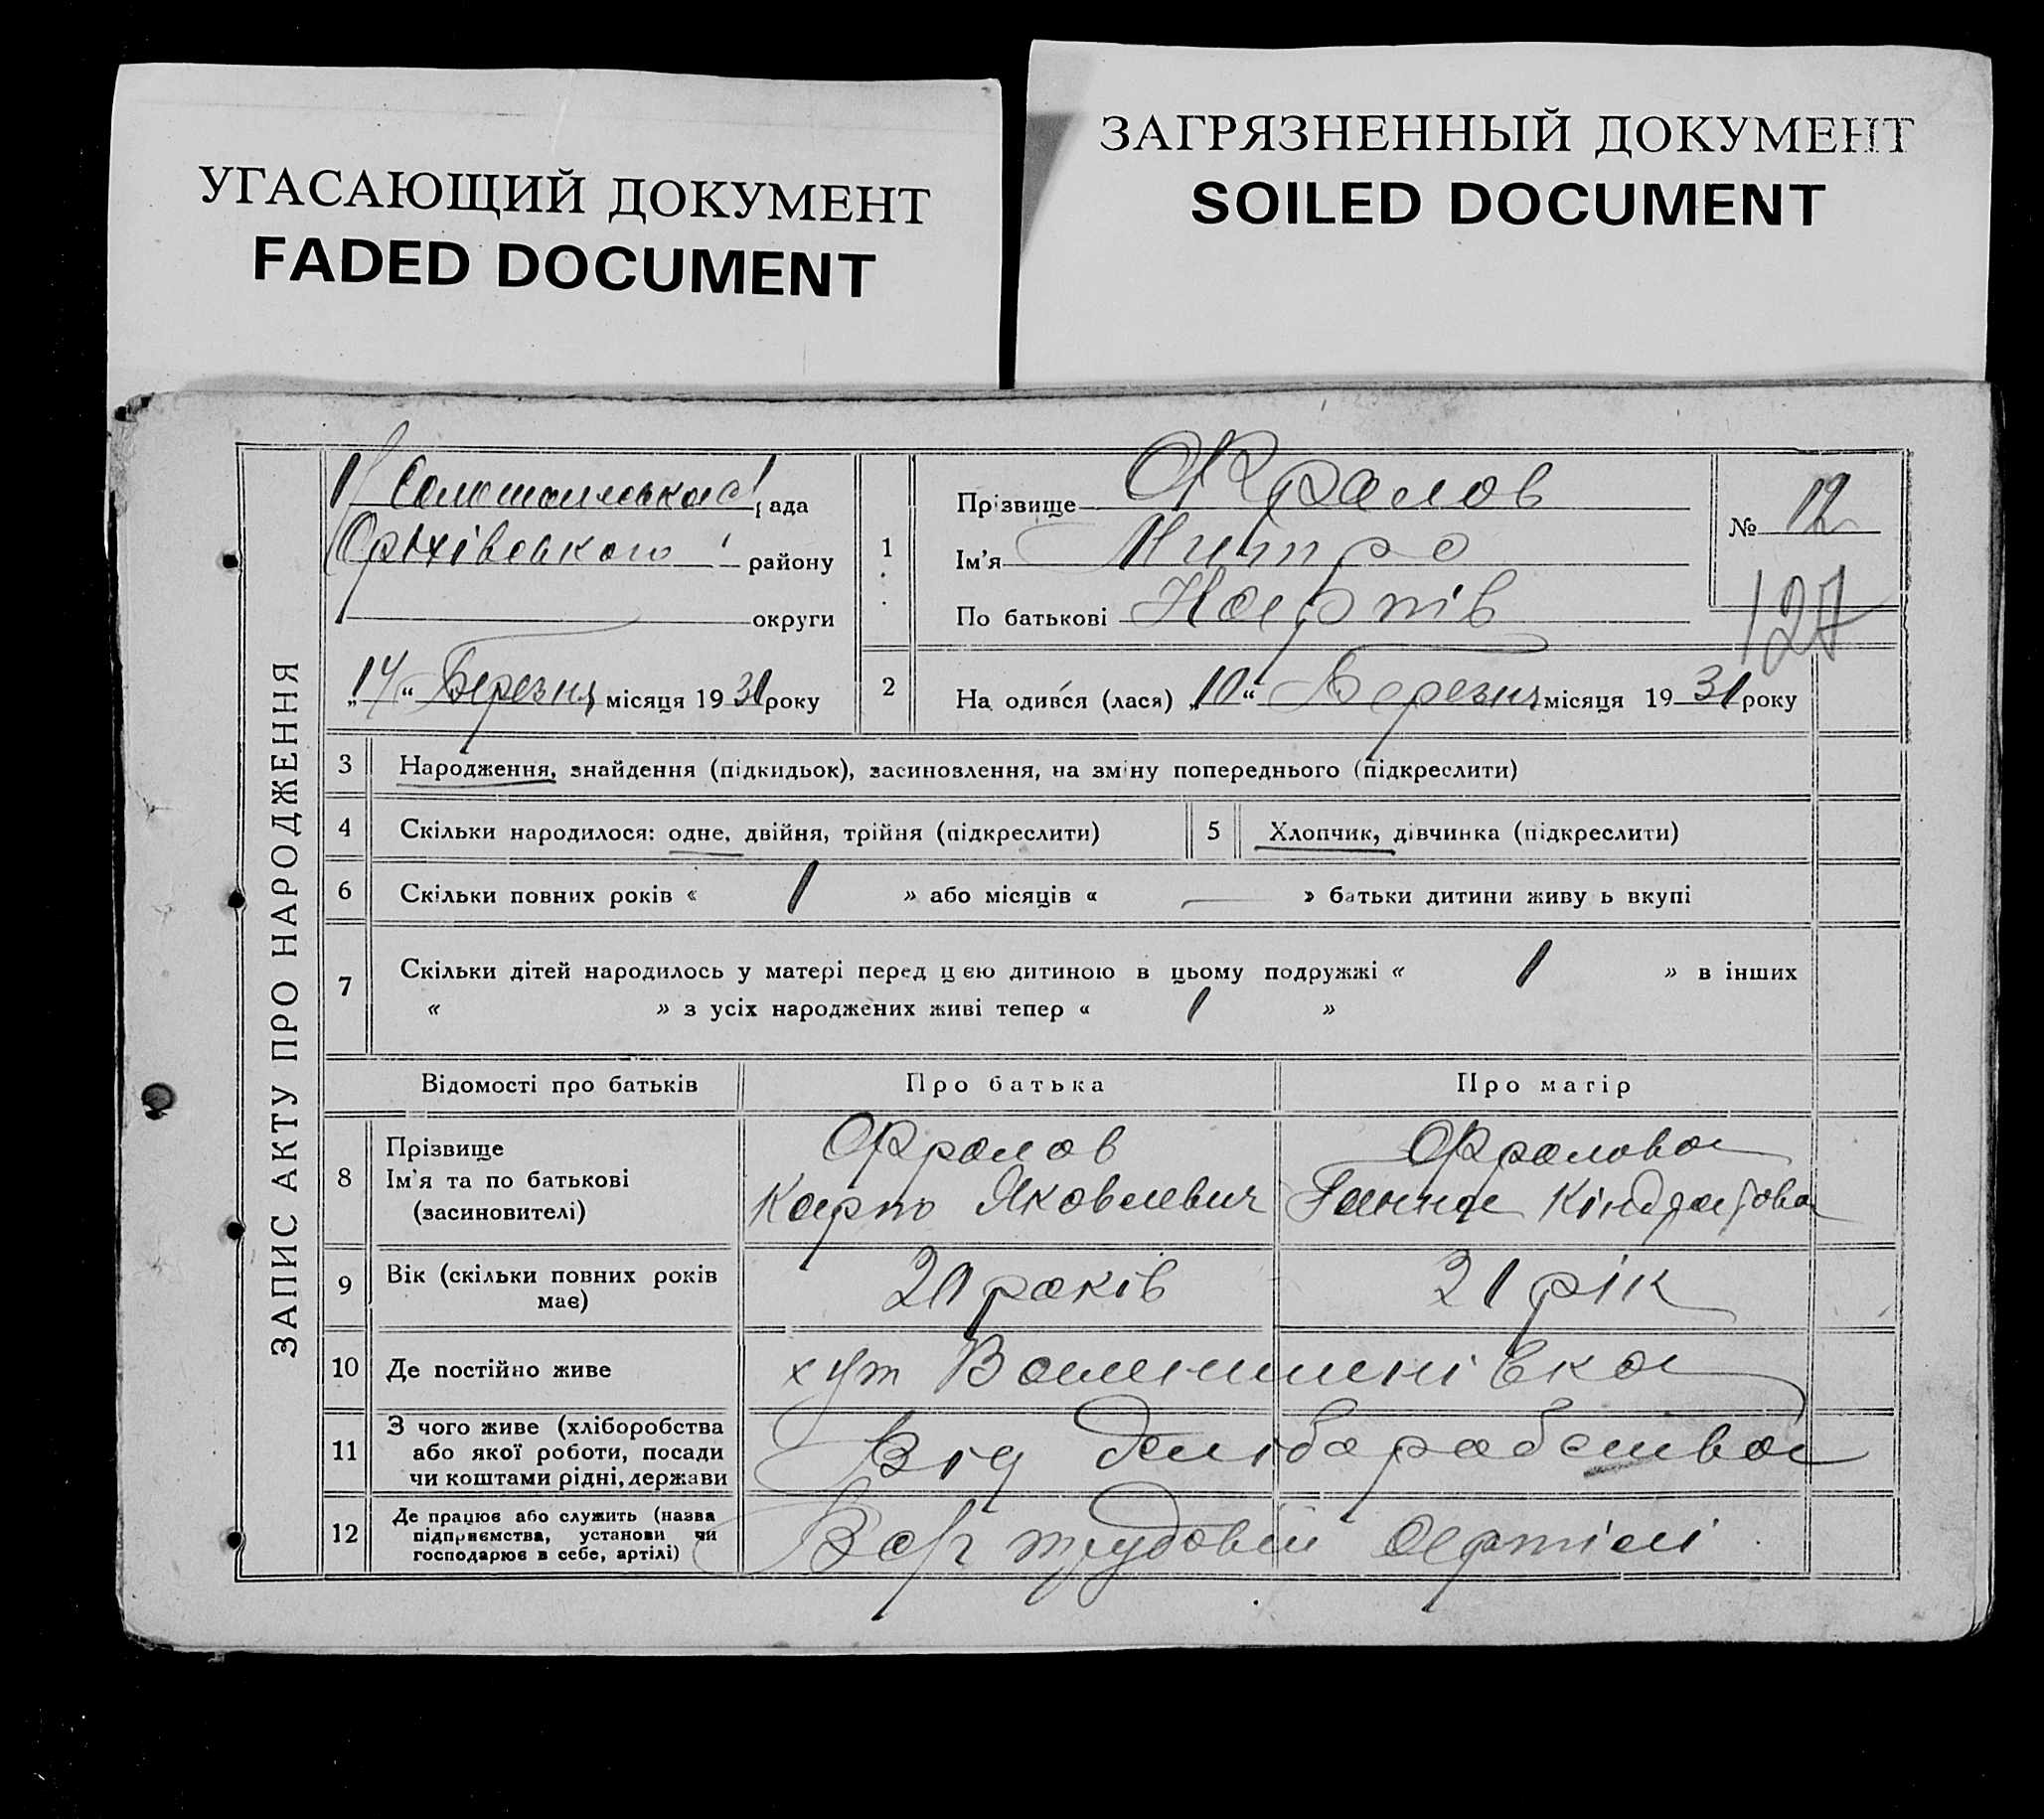 УГАСАЮЩИЙ ДОКУМЕНТ
FADED DOCUMENT
ЗАГРЯЗНЕННЫЙ ДОКУМЕНТ
SOILED DOCUMENT
ЗАПИС АКТУ ПРО НАРОДЖЕННЯ
рада
Оріхівського району
округи
„14“ Березня місяця 1931 року
1
Прізвище Фралов
Ім'я Митро
По батькові Карпів
№ 12
127
2 На одився (лася) „10“ Березня місяця 1931 року
3 Народження, знайдення (підкидьок), засиновлення, на зміну попереднього (підкреслити)
4 Скільки народилося: одне, двійня, трійня (підкреслити) 5 Хлопчик, дівчинка (підкреслити)
6 Скільки повних років « 1 » або місяців « — » батьки дитини живу ь вкупі
7 Скільки дітей народилось у матері перед цією дитиною в цьому подружжі « 1 » в інших
« » з усіх народжених живі тепер « 1 »
Відомості про батьків Про батька Про матір
8 Прізвище
Ім'я та по батькові
(засиновителі)
Фралов
Карпо Яковлевич
Фралова
Ганна Кіндратова
9 Вік (скільки повних років
має)
20 років 21 рік
10 Де постійно живе хут
11 З чого живе (хліборобства
або якої роботи, посади
чи коштами рідні, держави
Від хліборобства
12 Де працює або служить (назва
підприємства, установи чи
господарює в себе, артілі)
трудовій артілі